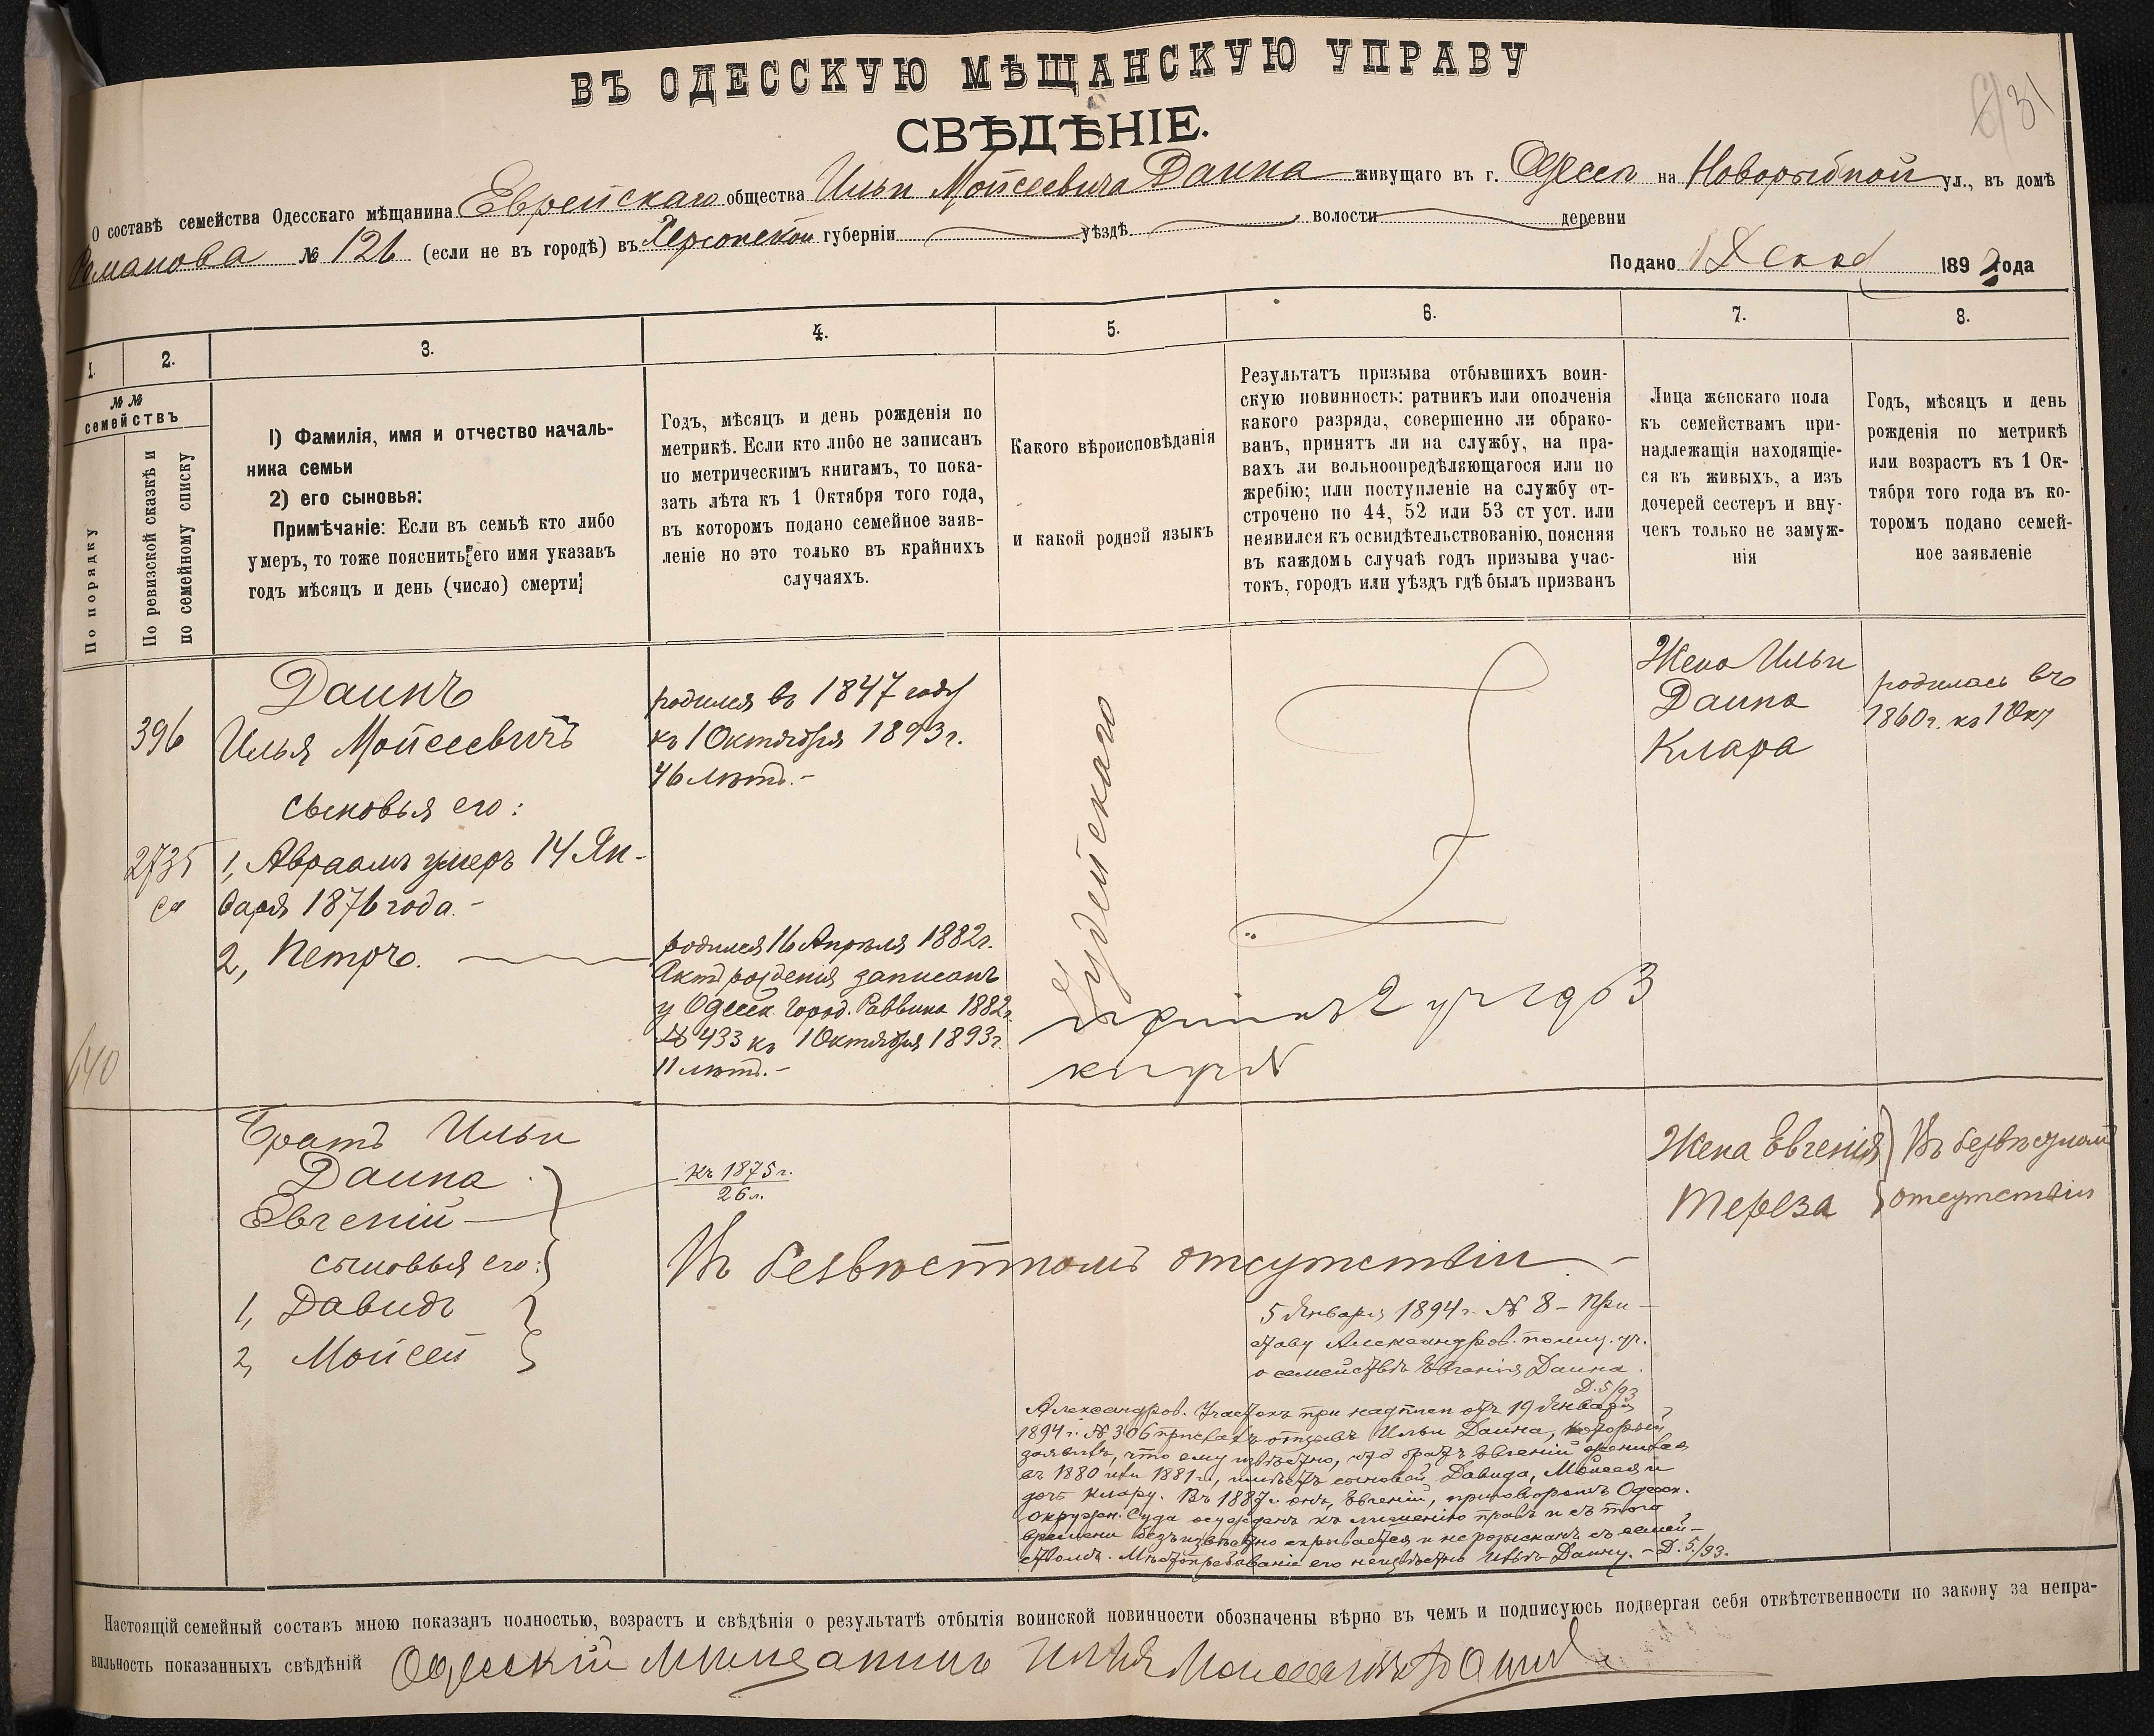 ВЪ ОДЕССКУЮ МѢЩАНСКУЮ УПРАВУ
СВѢДѢНІЕ.
31
О составѣ семейства Одесскаго мѣщанина Еврейскаго общества Ильи Мойсеевича Даина живущаго въ г. Одессѣ на Новорыбной ул., въ домѣ
№ 126 (если не въ городѣ) въ Херсонской губерніи уѣздѣ волости деревни
Подано 1 189 года
1. 2. 3. 4. 5. 6. 7. 8.
№№ семействъ
По порядку
По ревизской сказкѣ и по семейному списку
1) Фамилія, имя и отчество началь-
ника семьи
2) его сыновья:
Примѣчаніе: Если въ семьѣ кто либо
умеръ, то тоже пояснить его имя указавъ
годъ мѣсяцъ и день (число) смерти
Годъ, мѣсяцъ и день рожденія по
метрикѣ. Если кто либо не записанъ
по метрическимъ книгамъ, то пока-
зать лѣта къ 1 Октября того года,
въ которомъ подано семейное заяв-
леніе но это только въ крайнихъ
случаяхъ.
Какого вѣроисповѣданія
и какой родной языкъ
Результатъ призыва отбывшихъ воин-
скую повинность: ратникъ или ополченія
какого разряда, совершенно ли обрако-
ванъ, принятъ ли на службу, на пра-
вахъ ли вольноопредѣляющагося или по
жребію; или поступленіе на службу от-
строчено по 44, 52 или 53 ст уст. или
неявился къ освидѣтельствованію, поясняя
въ каждомъ случаѣ годъ призыва учас-
токъ, городъ или уѣздъ гдѣ былъ призванъ
Лица женскаго пола
къ семействамъ при-
надлежащія находящіе-
ся въ живыхъ, а изъ
дочерей сестеръ и вну-
чекъ только не замуж-
нія
Годъ, мѣсяцъ и день
рожденія по метрикѣ
или возрастъ къ 1 Ок-
тября того года въ ко-
торомъ подано семей-
ное заявленіе
396
2735
Даинъ
Илья Мойсеевичъ
сыновья его:
1, Авраамъ умеръ 14 Ян-
варя 1876 года.-
2, Петръ.
родился въ 1847 году
къ 1 Октября 1893 г.
46 лѣтъ.-
родился 16 Апрѣля 1882 г.
Актъ рожденія записанъ
у Одесск. Город. Раввина 1882 г.
№ 433 къ 1 Октября 1893 г.
11 лѣтъ.-
Іудейскаго
Жена Ильи
Даина
Клара
родилась въ
1860 г. къ 1 Окт
640
Братъ Ильи
Даина
Евгеній
сыновья его:
1, Давидъ
2, Мойсей
къ 1875 г.
26 л.
Въ безвѣстномъ отсутствіи
Жена Евгенія
Тереза
Въ безвѣстномъ
отсутствіи
5 Января 1894 г. № 8 - При-
ставу Александров. полиц. уч.
о семействѣ Евгенія Даина.
Д. 5/93
Александров. Участокъ при надписи отъ 19 Января
1894 г. № 306 отзывъ Ильи Даина, который
заявилъ, что ему извѣстно, что братъ Евгеній женился
въ 1880 или 1881 г., имѣетъ сыновей Давида, Мойсея и
дочь Клару. Въ 1887 г. онъ, Евгеній, приговоромъ Одесск.
Окружн. Суда осужденъ къ лишенію правъ и съ того
времени безъизвѣстно скрывается и не розысканъ съ семей-
ствомъ. Мѣстопребываніе его неизвѣстно Ильѣ Даину. - Д. 5/93.
Настоящій семейный составъ мною показанъ полностью, возрастъ и свѣдѣнія о результатѣ отбытія воинской повинности обозначены вѣрно въ чемъ и подписуюсь подвергая себя отвѣтственности по закону за непра-
вильность показанныхъ свѣдѣній Одесскій Мищанинъ Илья